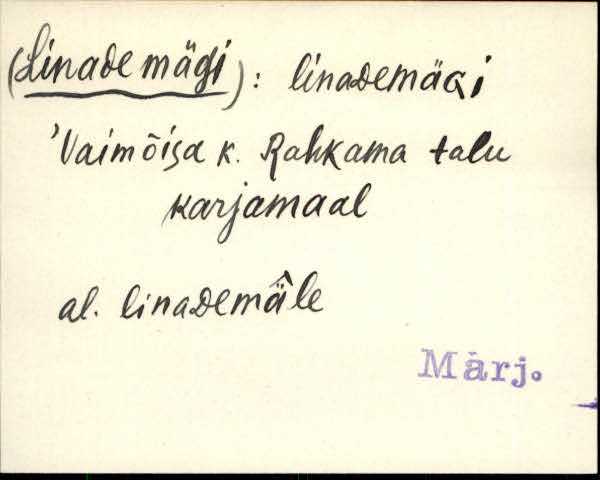 (Linade mägi): linaᴅemäɢi
'Vaimõisa k. Rahkama talu
karjamaal
al. linaᴅemä̂le
Märj.